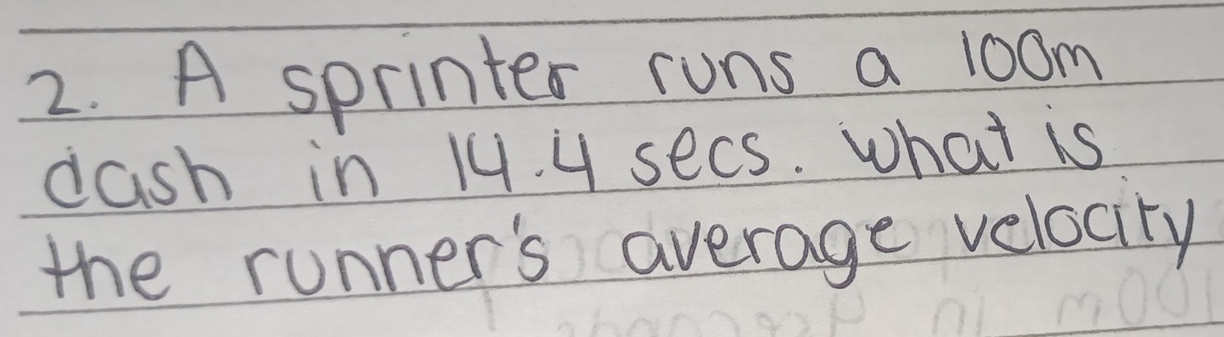 2. A sprinter runs a 100m
dash in 14.4 secs. What is
the runner's average velocity